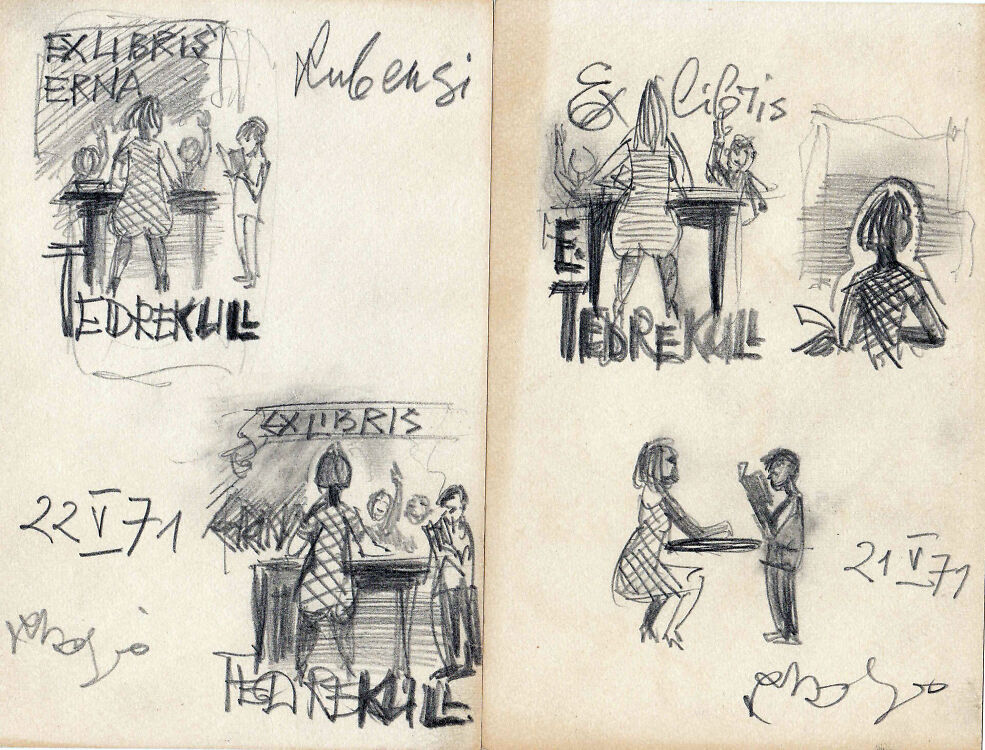 EX LIBRIS
ERNA
TEDREKULL
EX LIBRIS
22 V 71
TEDREKULL
Ex libris
E.
TEDREKULL
21 V 71